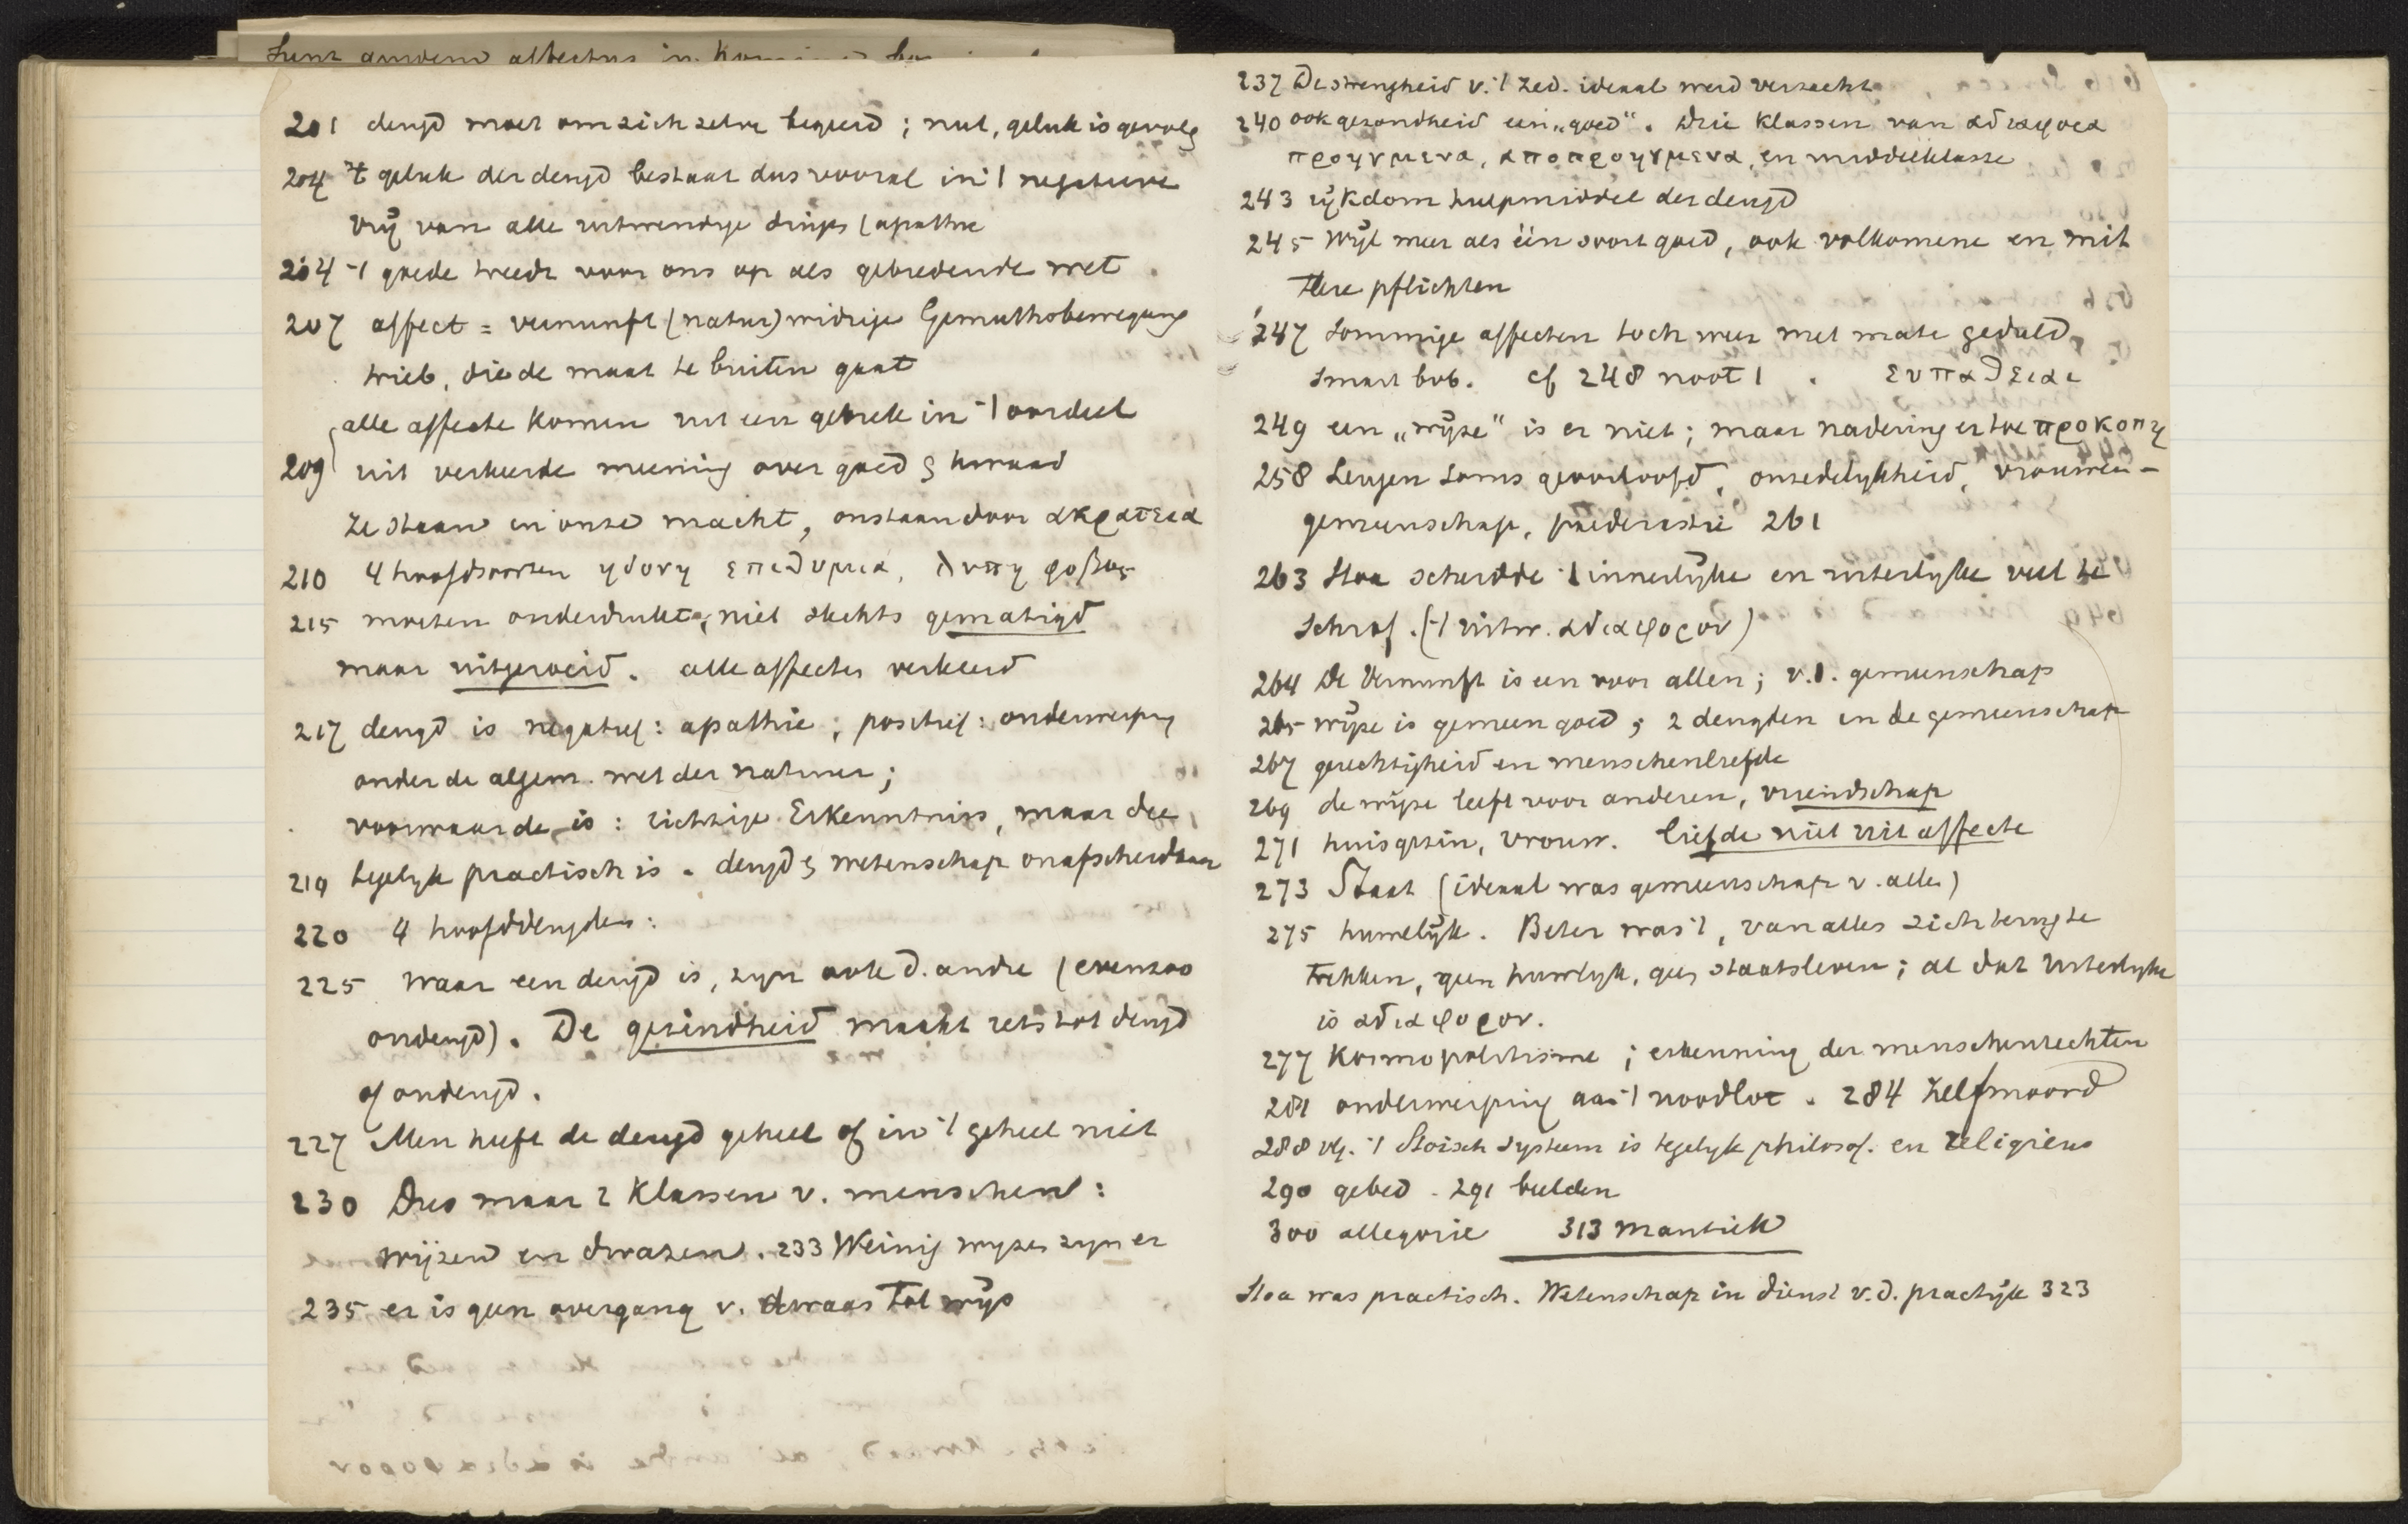 201 deugd moet om zich zelve begeerd ; nut, geluk is gevolg
204 't geluk der deugd bestaat dus vooral in 't negatieve
vrij van alle uitwendige dinges (apathie
204 't goede treedt voor ons op als gebiedende wet.
207 affect = vernunft (natur) widrige Gemuthsbewegung
trieb, die de maat te buiten gaat
alle affecte komen uit een gebrek in 't oordeel
209 uit verkeerde meening over goed & kwaad
ze staan in onze macht, onstaan door ακρατεια
210 4 hoofdsoorten ηδονη επιθυμια, λυπη φοβος
215 moeten onderdrukt, niet slechts gematigd
maar uitgeroeid. alle affecten verkeerd
217 deugd is negatief : apathie ; positief : onderwerping
onder de algem. wet der natuur ;
voorwaarde is : richtige Erkenntniss, maar die
219 tegelyk practisch is. deugd & wetenschap onafscheidbaar
220 4 hoofddeugden :
225 waar een deugd is, zyn ook d. andre (evenzoo
ondeugd). De gezindheid maakt iets tot deugd
of ondeugd.
227 Men heeft de deugd geheel of in 't geheel niet
230 Dus maar 2 klassen v. menschen :
wijzen en dwazen. 233 Weinig wyzen zyn er
235 er is geen overgang v. dwaas tot wijs
237 De strengheid v. 't zed. ideaal werd verzacht
240 ook gezondheid een „goed". Drie klassen van αδιαφορα
προηγμενα, αποπροηγμενα, en middelklasse
243 rijkdom hulpmiddel der deugd
245 Wijl meer als één soort goed, ook volkomene en mit
tlere pflichten
247 Sommige affecten toch weer met mate geduld,
smart bvb. cf 248 noot 1. ευπαθειαι
249 een „wijze" is er niet ; maar nadering er toe προκοπη
258 Leugen soms geoorloofd, onzedelykheid, vrouwen-
gemeenschap, paederastie 261
263 Stoa scheidde 't innerlijke en uiterlijke veel te
schrof. ('t uitw. αδιαφορον)
264 De Vernunft is een voor allen ; v. d. gemeenschap
265 wijze is gemeen goed ; 2 deugden in de gemeenschap
267 gerechtigheid en menschenliefde
269 de wijze leeft voor anderen, vriendschap
271 huisgezin, vrouw. liefde niet uit affecte
273 Staat (ideaal was gemeenschap v. alle)
275 huwelijk. Beter was 't, van alles zich terug te
trekken, geen huwlyk, geen staatsleven ; al dat uiterlyke
is αδιαφορον.
277 Kosmopolitisme ; erkenning der menschenrechten
281 onderwerping aan 't noodlot. 284 zelfmoord
288 vlg. 't Stoisch systeem is tegelyk philosof. en religieus
290 gebed. 291 beelden
300 allegorie 313 Mantiek
Stoa was practisch. Wetenschap in dienst v. d. practijk 323